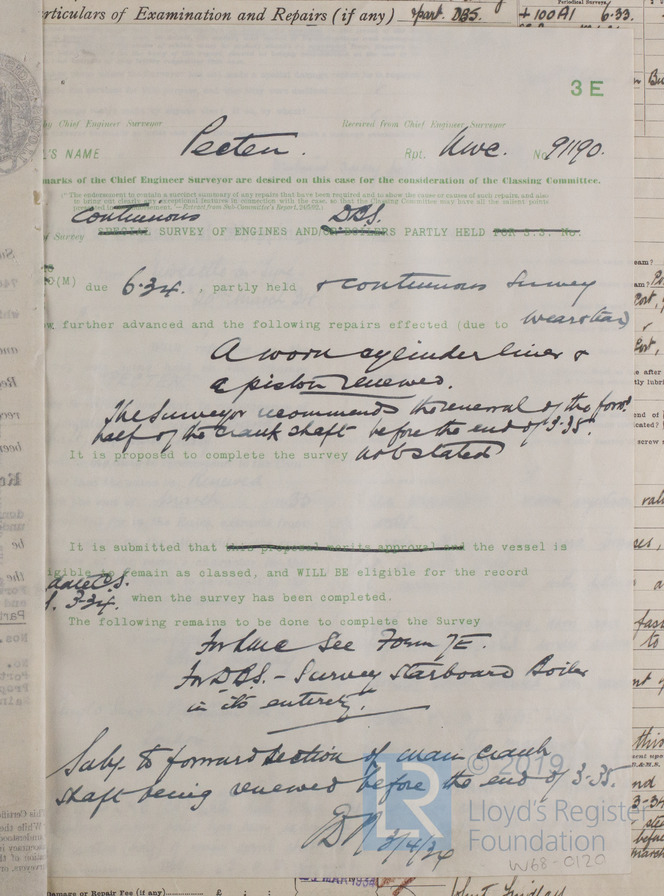 rticulars of Examination and Repairs (if any) part. DBS.
Periodical Surveys
+100A1 6.33.
3 E
by Chief Engineer Surveyor Received from Chief Engineer Surveyor
'S NAME Pecten. Rpt. Nwc. No 91190.
marks of the Chief Engineer Surveyor are desired on this case for the consideration of the Classing Committee.
(The endorsement to contain a succinct summary of any repairs that have been required and to show the cases of causes of such repairs, and also
continuous DBS.
of Survey SPECIAL SURVEY OF ENGINES AND/OR BOILERS PARTLY HELD FOR S.S. No.
(M) due 6.34. , partly held & continuous Survey
further advanced and the following repairs effected (due to Wear&tear)
A worn cylinder liner &
a piston renewed.
The Surveyor recommends the renewal of the forwd
half of the crank shaft before the end of 3-35.
It is proposed to complete the survey not stated
It is submitted that this proposal merits approval and the vessel is
igible to remain as classed, and WILL BE eligible for the record
3-34. when the survey has been completed.
The following remains to be done to complete the Survey
For LMC See Form 7E.
For DBS. - Survey Starboard Boiler
in its entirety.
Subj. to forward section of main crank
shaft being renewed before the end of 3-35.
3/4/34
© 2019
LR
Lloyd's Register
Foundation
W68-0120
Damage or Repair Fee (if any) £ : :